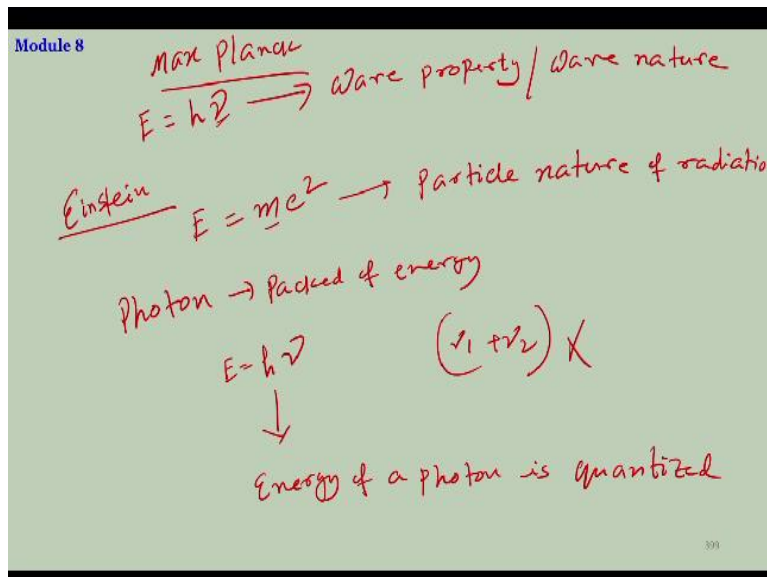 Module 8
Max Planck
E = hν → Wave property / Wave nature
Einstein E = mc² → Particle nature of radiatio
Photon → Packed of energy
E = hν (ν₁ + ν₂) X
↓
Energy of a photon is quantized
399